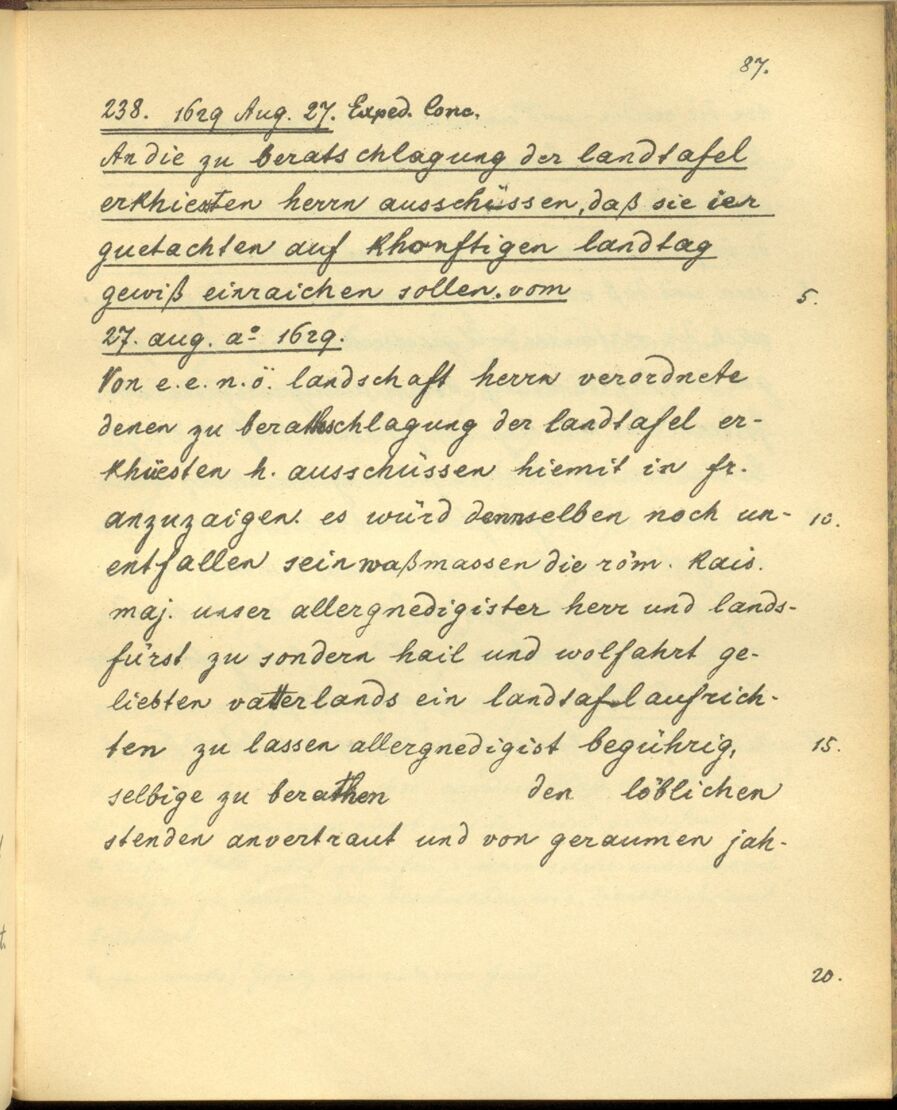 87.
238. 1629 Aug. 27. Exped. Conc.
An die zu beratschlagung der landtafel
erkhiesten herrn ausschüssen, daß sie ier
guetachten auf khonftigen landtag
gewiß einraichen sollen. vom
5.
27. aug. aº 1629.
Von e. e. n. ö. landschaft herrn verordnete
denen zu berathschlagung der landtafel er-
khiesten h. ausschüssen hiemit in fr.
anzuzaigen. es würd dennselben noch un- 10.
entfallen sein waßmassen die röm. kais.
maj. unser allergnedigister herr und lands-
fürst zu sondern hail und wolfahrt ge-
liebten vatterlands ein landtafel aufrich-
ten zu lassen allergnedigist begührig, 15.
selbige zu berathen den löblichen
stenden anvertraut und von geraumen jah-
20.